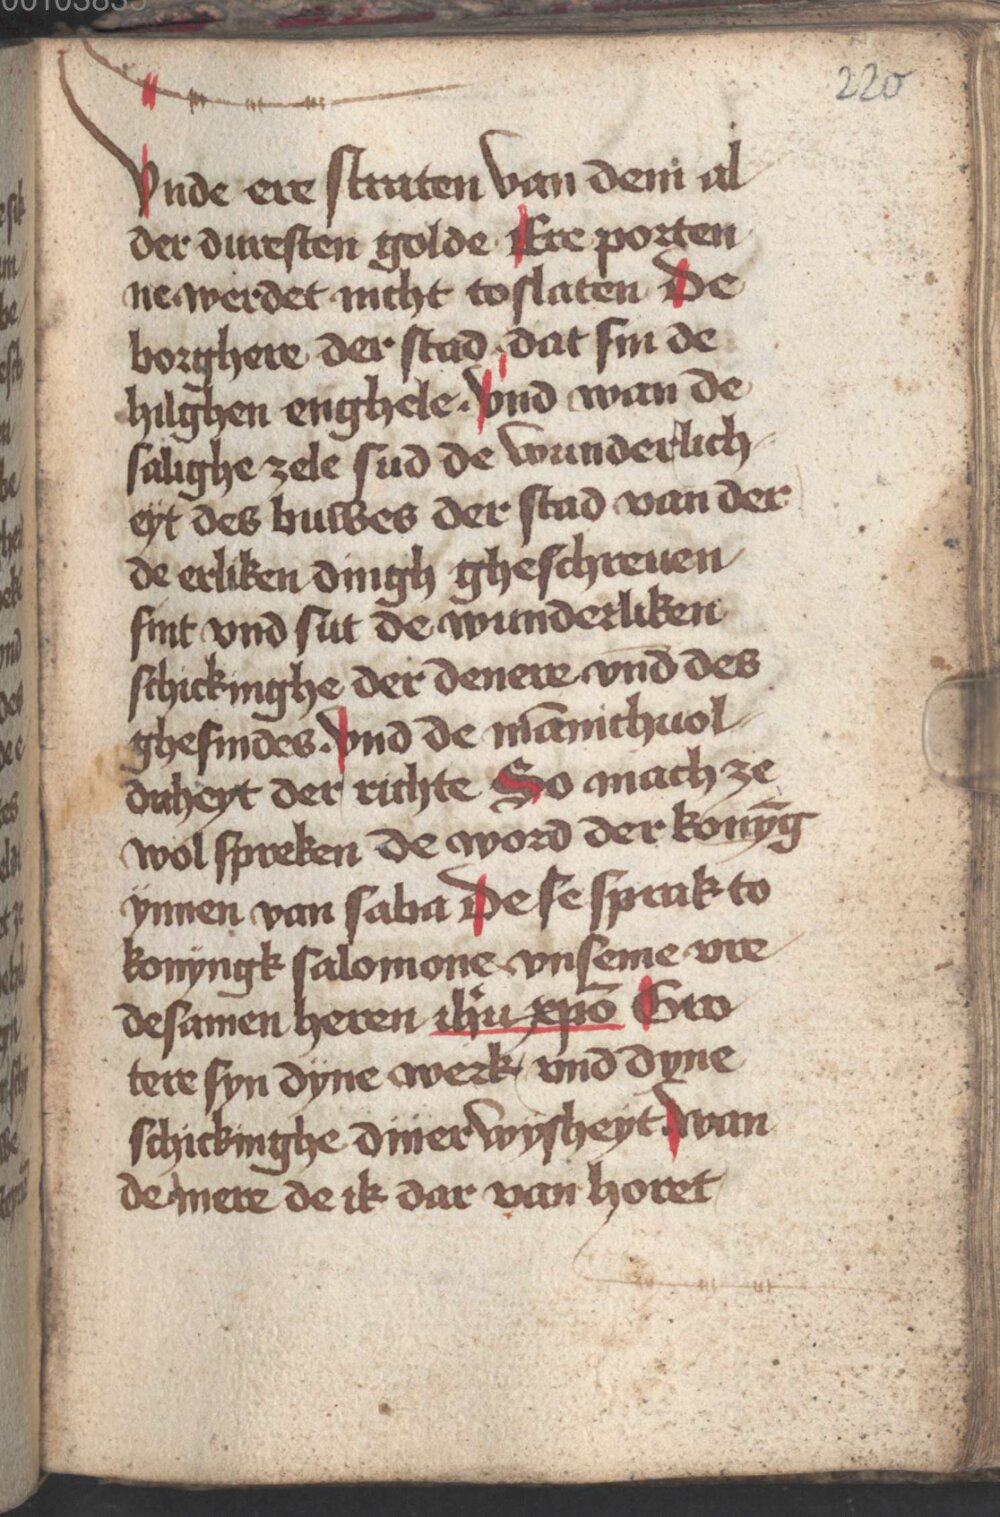 00103835
220
Vnde ere straten van dem al
der duresten golde Ere porten
ne werdet nicht to slaten De
borghere der stad dat sin de
hilghen enghele. vnd wan de
salighe zele sud de wunderlich
eyt des buwes der stad van der
de erliken dingh gheschreuen
sint vnd sut de wunderliken
schickinghe der denere vnd des
ghesindes. vnd de mānichuol
dicheyt der richte So mach ze
wol spreken de word der konȳg
ynnen van saba De se sprak to
konyngk salomone vnseme vre
desamen heren ihu xpō Gro
tere syn dyne werk vnd dyne
schickinghe diner wysheyt. wan
de mere de ik dar van horet